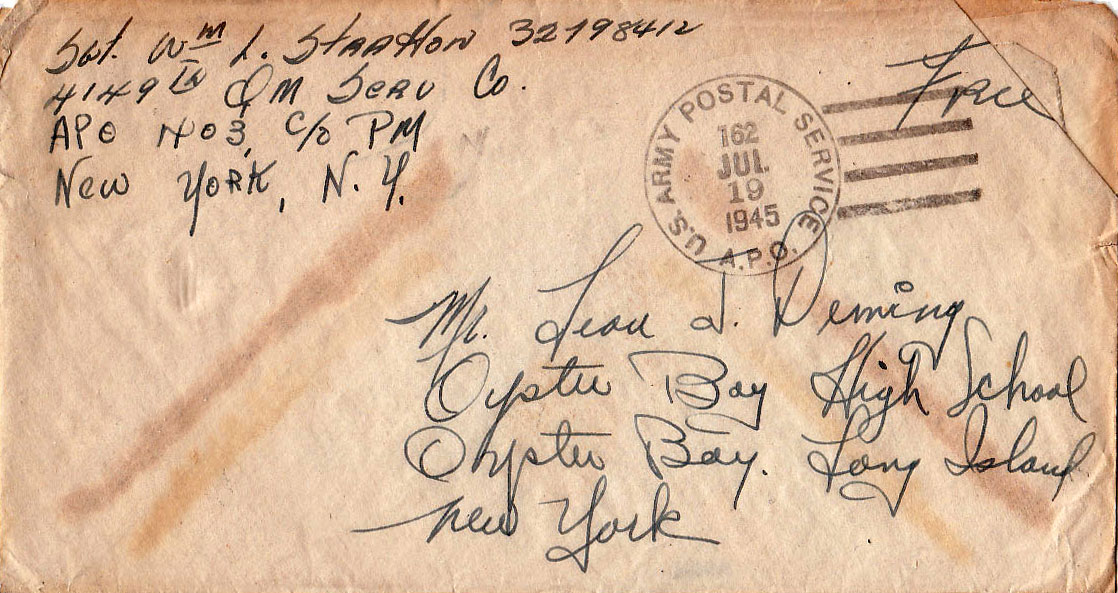 Sgt. Wm L. Stratton 32198412
4149th QM Serv Co.
APO 403, c/o PM
New York, N.Y.
Free
U.S. ARMY POSTAL SERVICE
162
JUL
19
1945
A.P.O.
Mr. Leon J. Deming
Oyster Bay High School
Oyster Bay. Long Island
New York